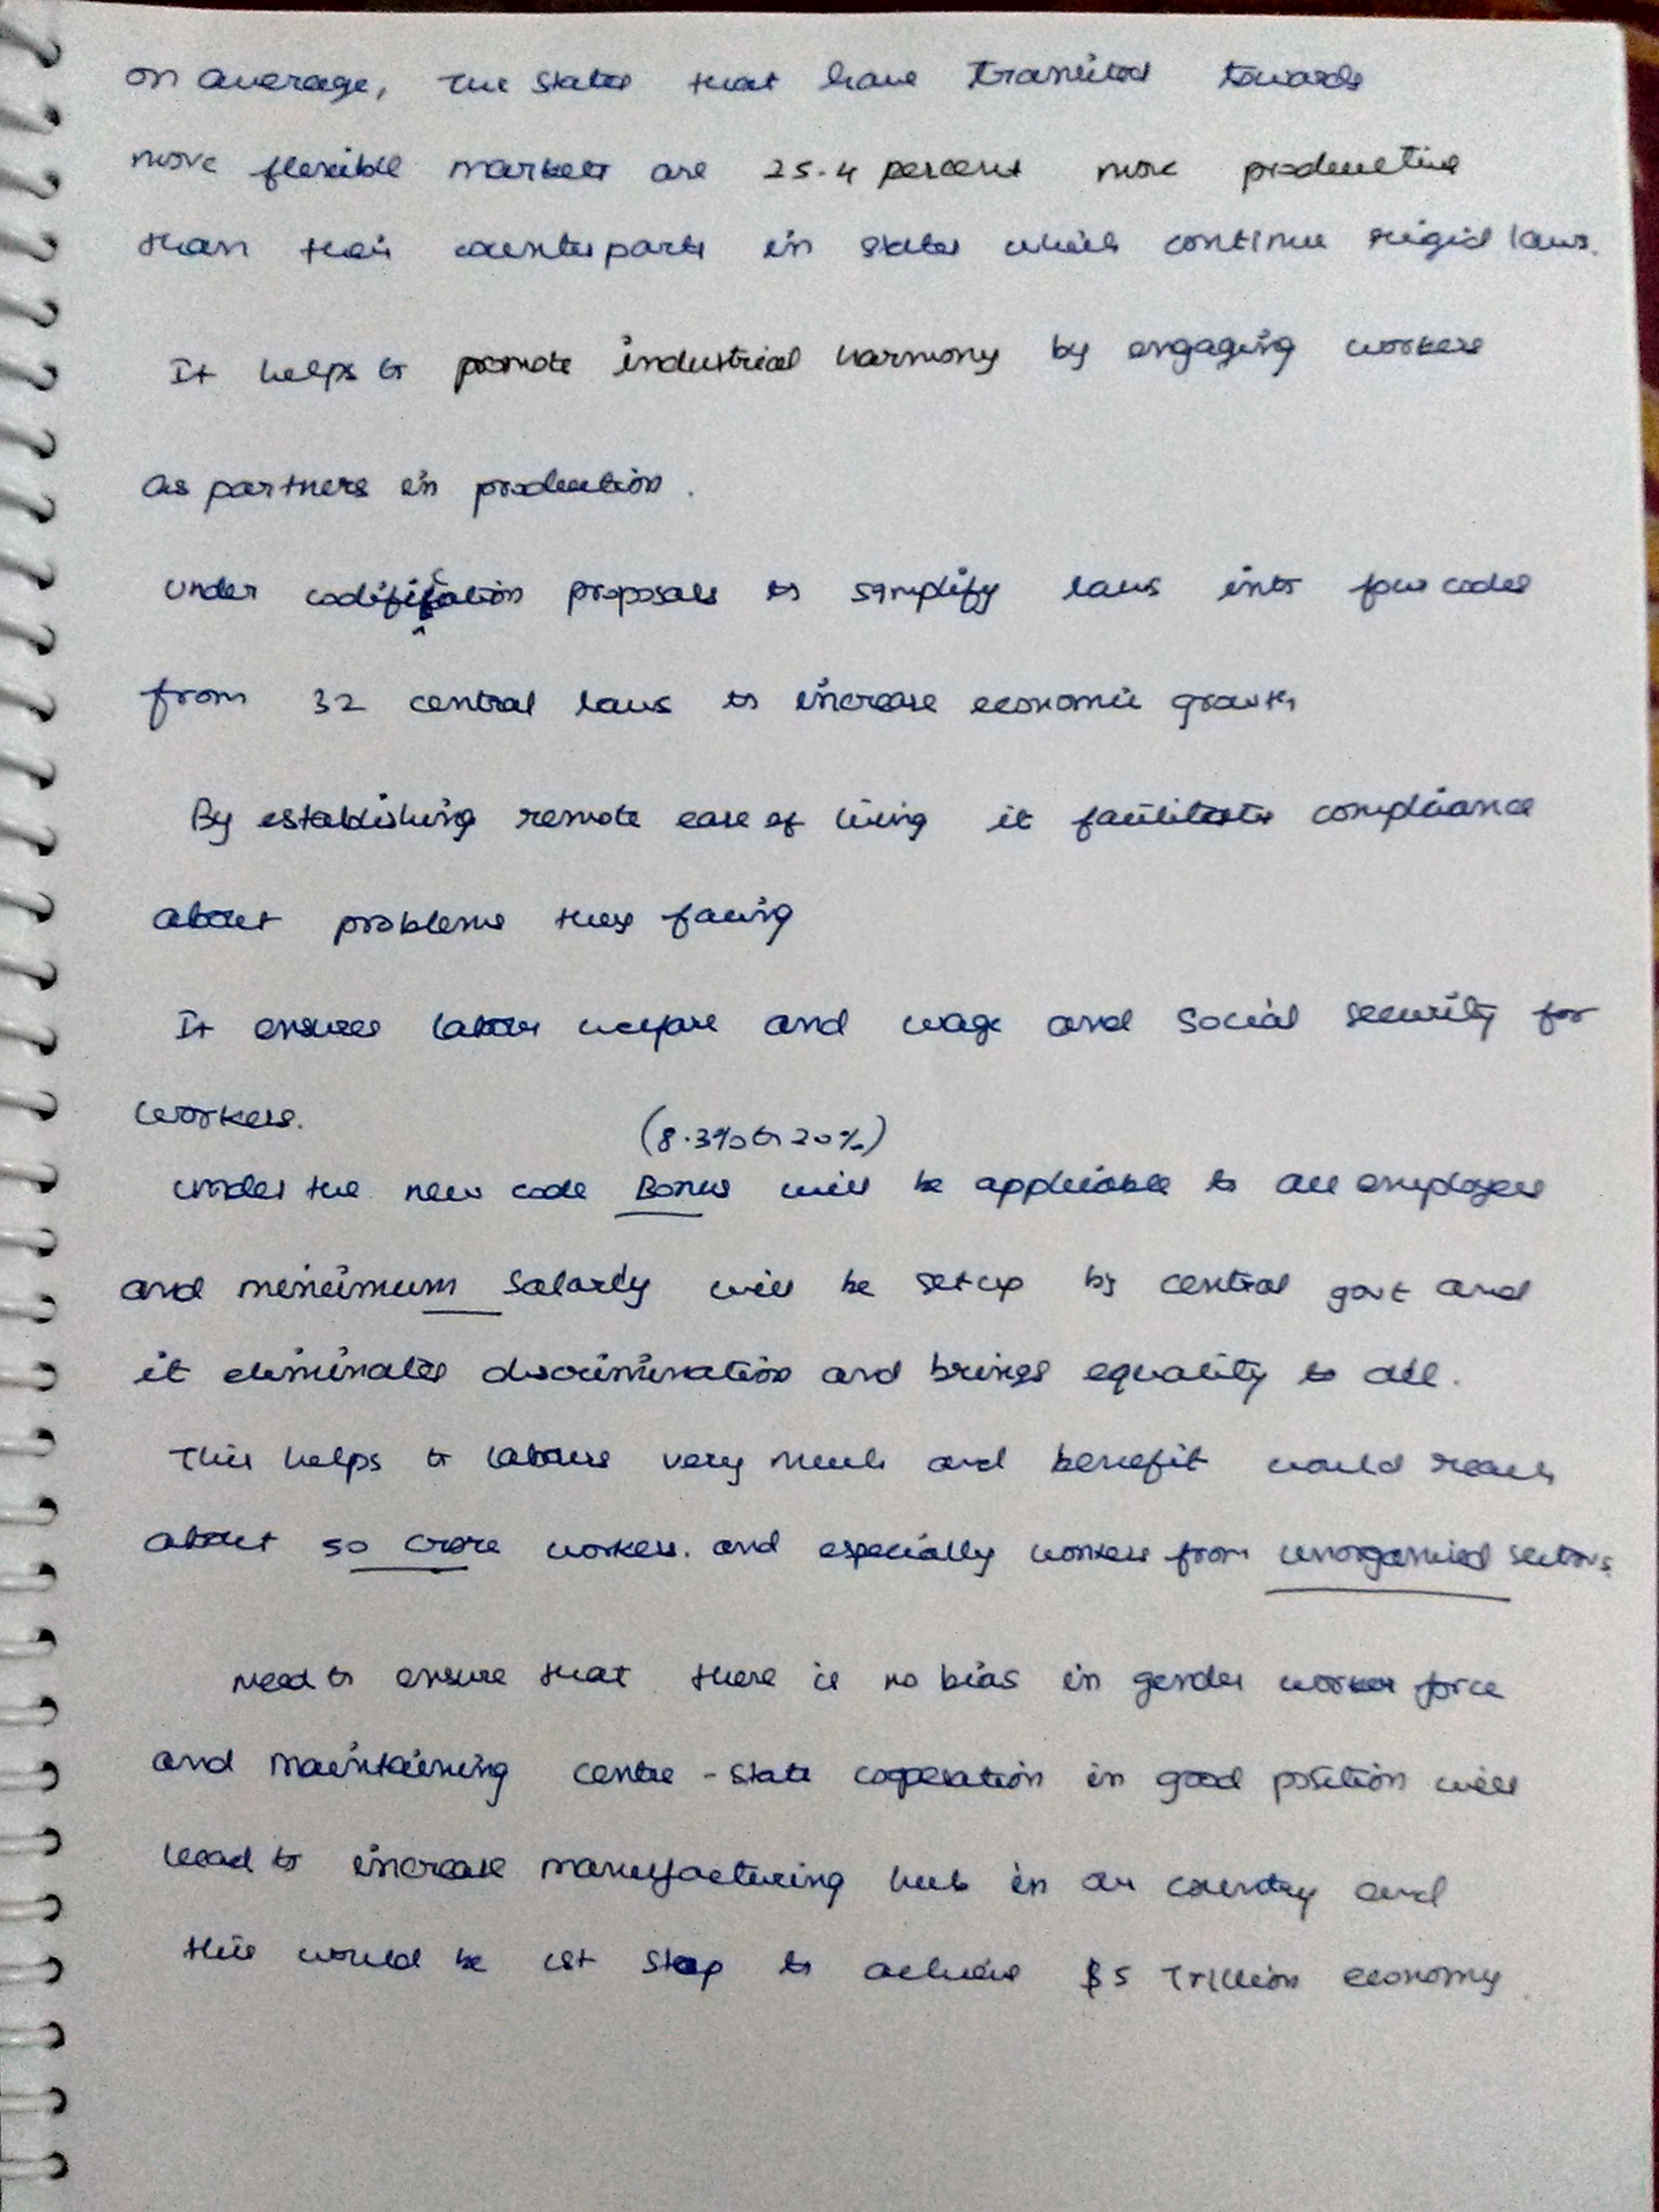 on average, the states that have transited towards
more flexible markets are 25.4 percent more productive
than their counterparts in states which continue rigid laws.
It helps to promote industrial harmony by engaging workers
as partners in production.
under codification proposals to simplify laws into four codes
from 32 central laws to increase economic growth
By establishing remote ease of living it facilitates compliance
about problems they facing
It ensures labour welfare and wage and social security for
workers.
(8.3% to 20%)
under the new code Bonus will be applicable to all employees
and minimum salary will be setup by central govt and
it eliminates discrimination and brings equality to all.
This helps to labours very much and benefit would reach
about 50 crore workers. and especially workers from unorganised sectors.
Need to ensure that there is no bias in gender worker force
and maintaining centre - state cooperation in good position will
lead to increase manufacturing hub in our country and
this would be 1st step to achieve $5 Trillion economy.